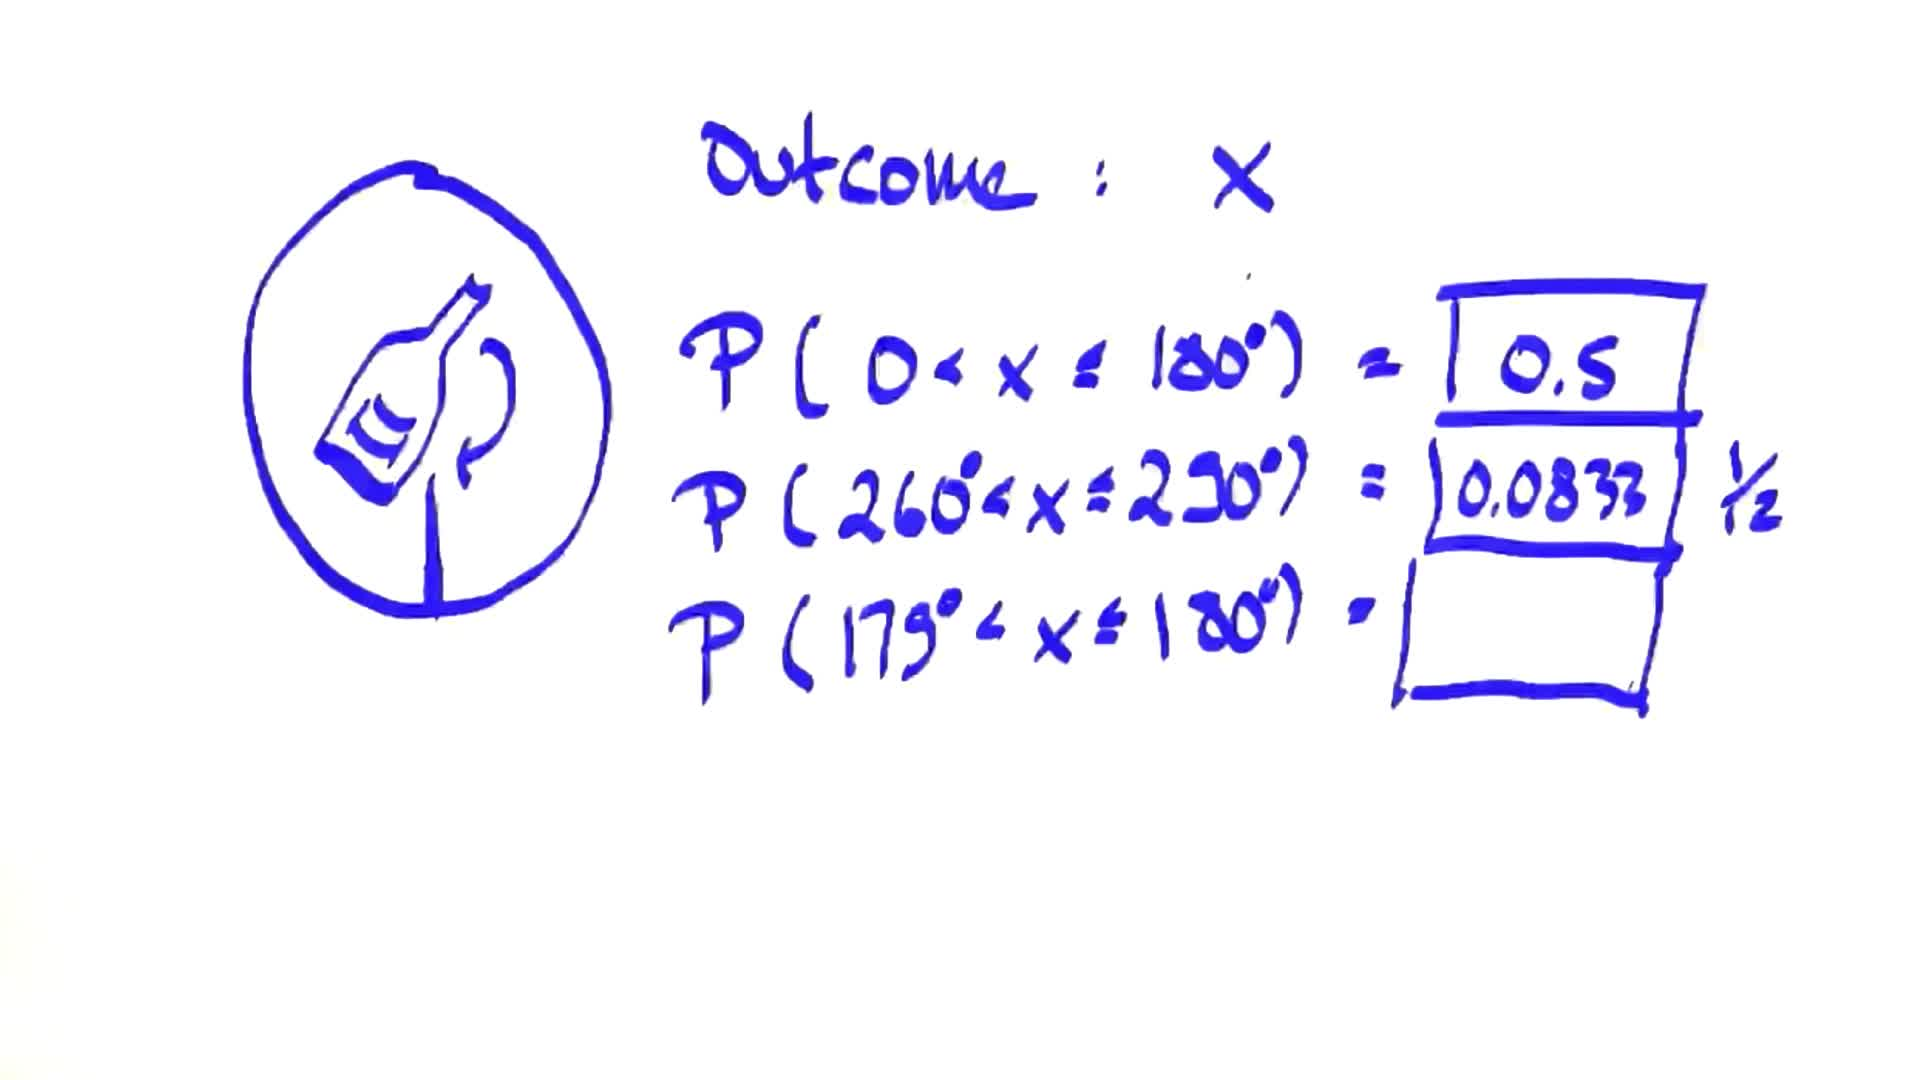 Outcome : X
P ( 0 < x ≤ 180°) = 0.5
P ( 260° < x ≤ 290°) = 0.0833 1/12
P ( 179° < x ≤ 180°) =